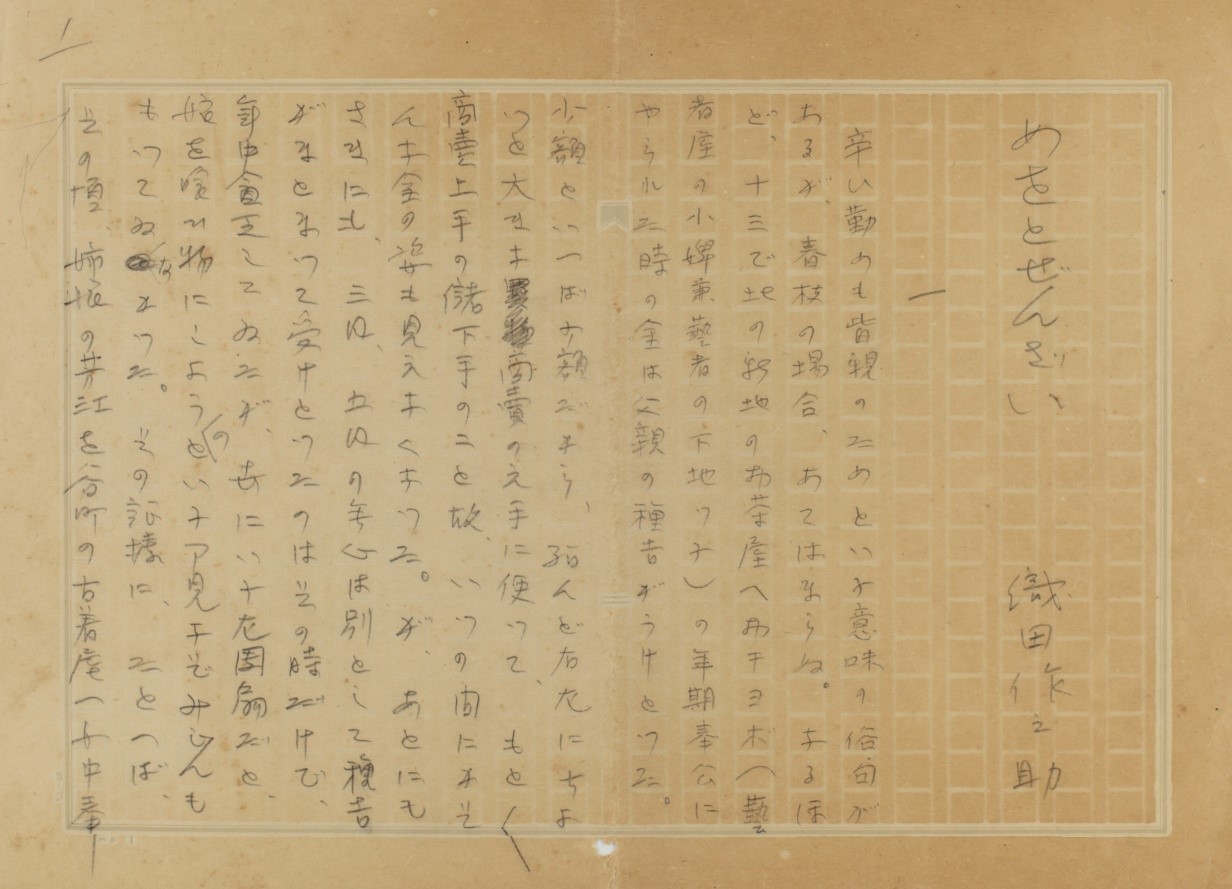 1
めをとぜんざい
織田作之助
一
辛い勤めも皆親のためといふ意味の俗句が
あるが、春枝の場合、あてはまらぬ。なるほ
ど、十三で北の新地のお茶屋へおチヨボ（藝
者屋の小婢兼藝者の下地ツ子）の年期奉公に
やられた時の金は父親の種吉がうけとつた。
少額といへば少額だから、殆んど右左にちよ
つと大きな商賣の元手に使つて、もと〱
商賣上手の儲下手のこと故、いつの間にかそ
んな金の姿も見えなくなつた。が、あとにも
さきにも、三円、五円の無心は別として種吉
がまとまつて受けとつたのはその時だけで、
年中貧乏してゐたが、世にいふ左團扇だと、
娘を喰ひ物にしようとのいふ了見などみぢんも
もつてゐなかつた。その証據に、たとへば、
その頃、姉娘の芳江を谷町の古着屋へ女中奉